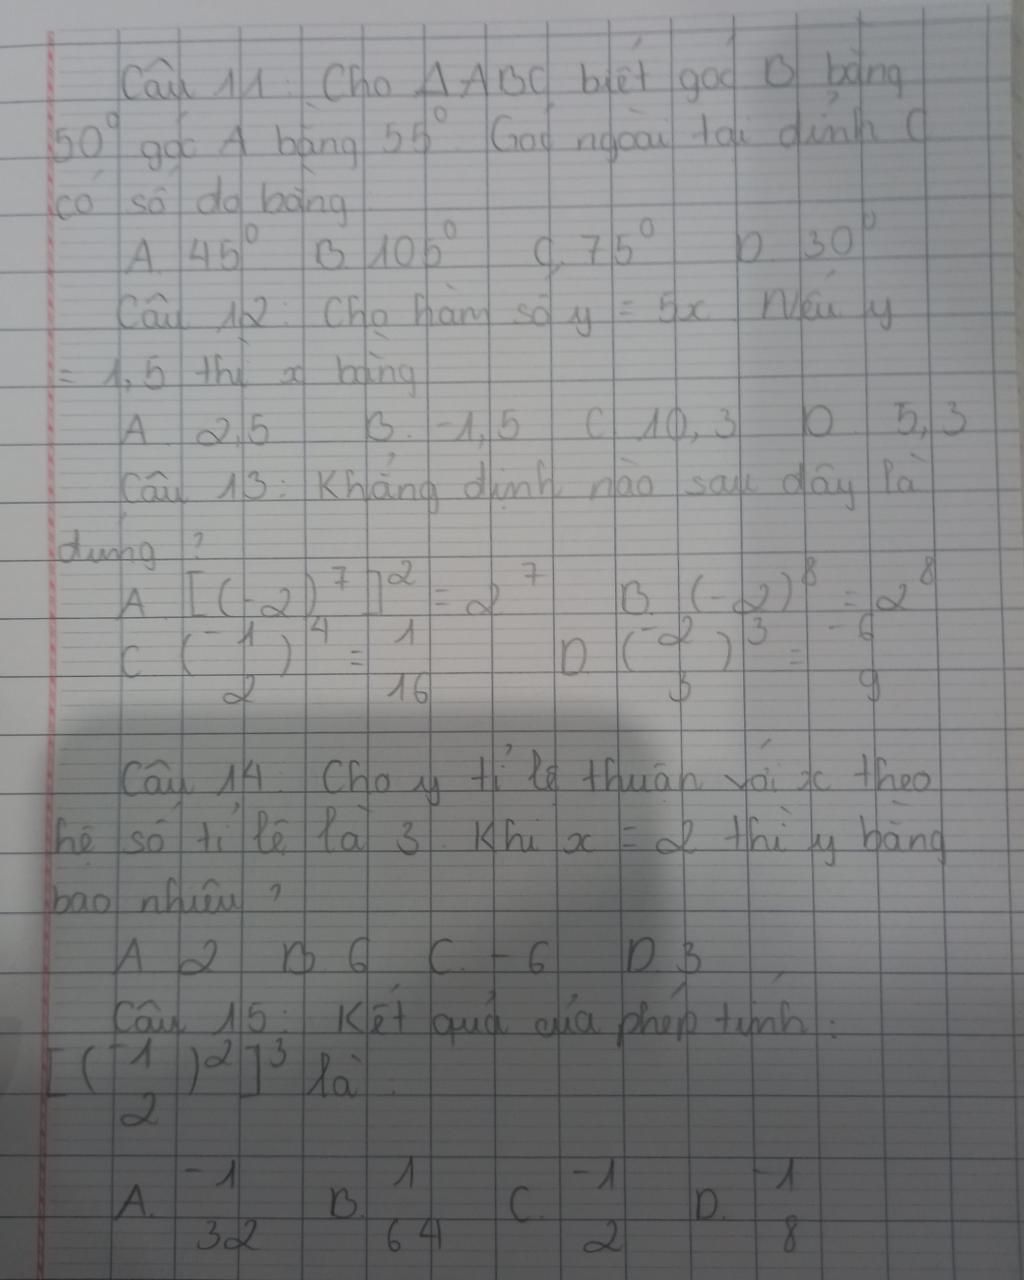 Câu 11: Cho ΔABC biết góc B bằng
50° góc A bằng 55° Góc ngoài tại đỉnh C
có số đo bằng
A. 45° B. 105° C. 75° D. 30°
Câu 12: Cho hàm số y = 5x Nếu y
= 1,5 thì x bằng
A. 2,5 B. -1,5 C. 10,3 D. 5,3
Câu 13: Khẳng định nào sau đây là
đúng?
A. [(-2)^7]^2 = 2^7 B. (-2)^8 = 2^8
C. (-1/2)^4 = 1/16 D. (-2/3)^3 = -6/9
Câu 14: Cho y tỉ lệ thuận với x theo
hệ số tỉ lệ là 3. Khi x = 2 thì y bằng
bao nhiêu?
A. 2 B. 6 C. -6 D. 3
Câu 15: Kết quả của phép tính:
[(-1/2)^2]^3 là:
A. -1/32 B. 1/64 C. -1/2 D. -1/8